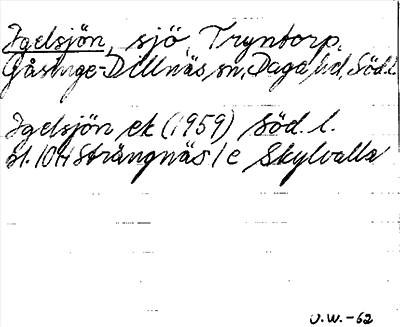 Igelsjön, sjö, Tryntorp,
Gåsinge-Dillnäs sn, Daga hd, Söd. l.
Igelsjön ek (1959) Söd. l.
bl. 10H Strängnäs 1 c Skylvalla
O.W.-62